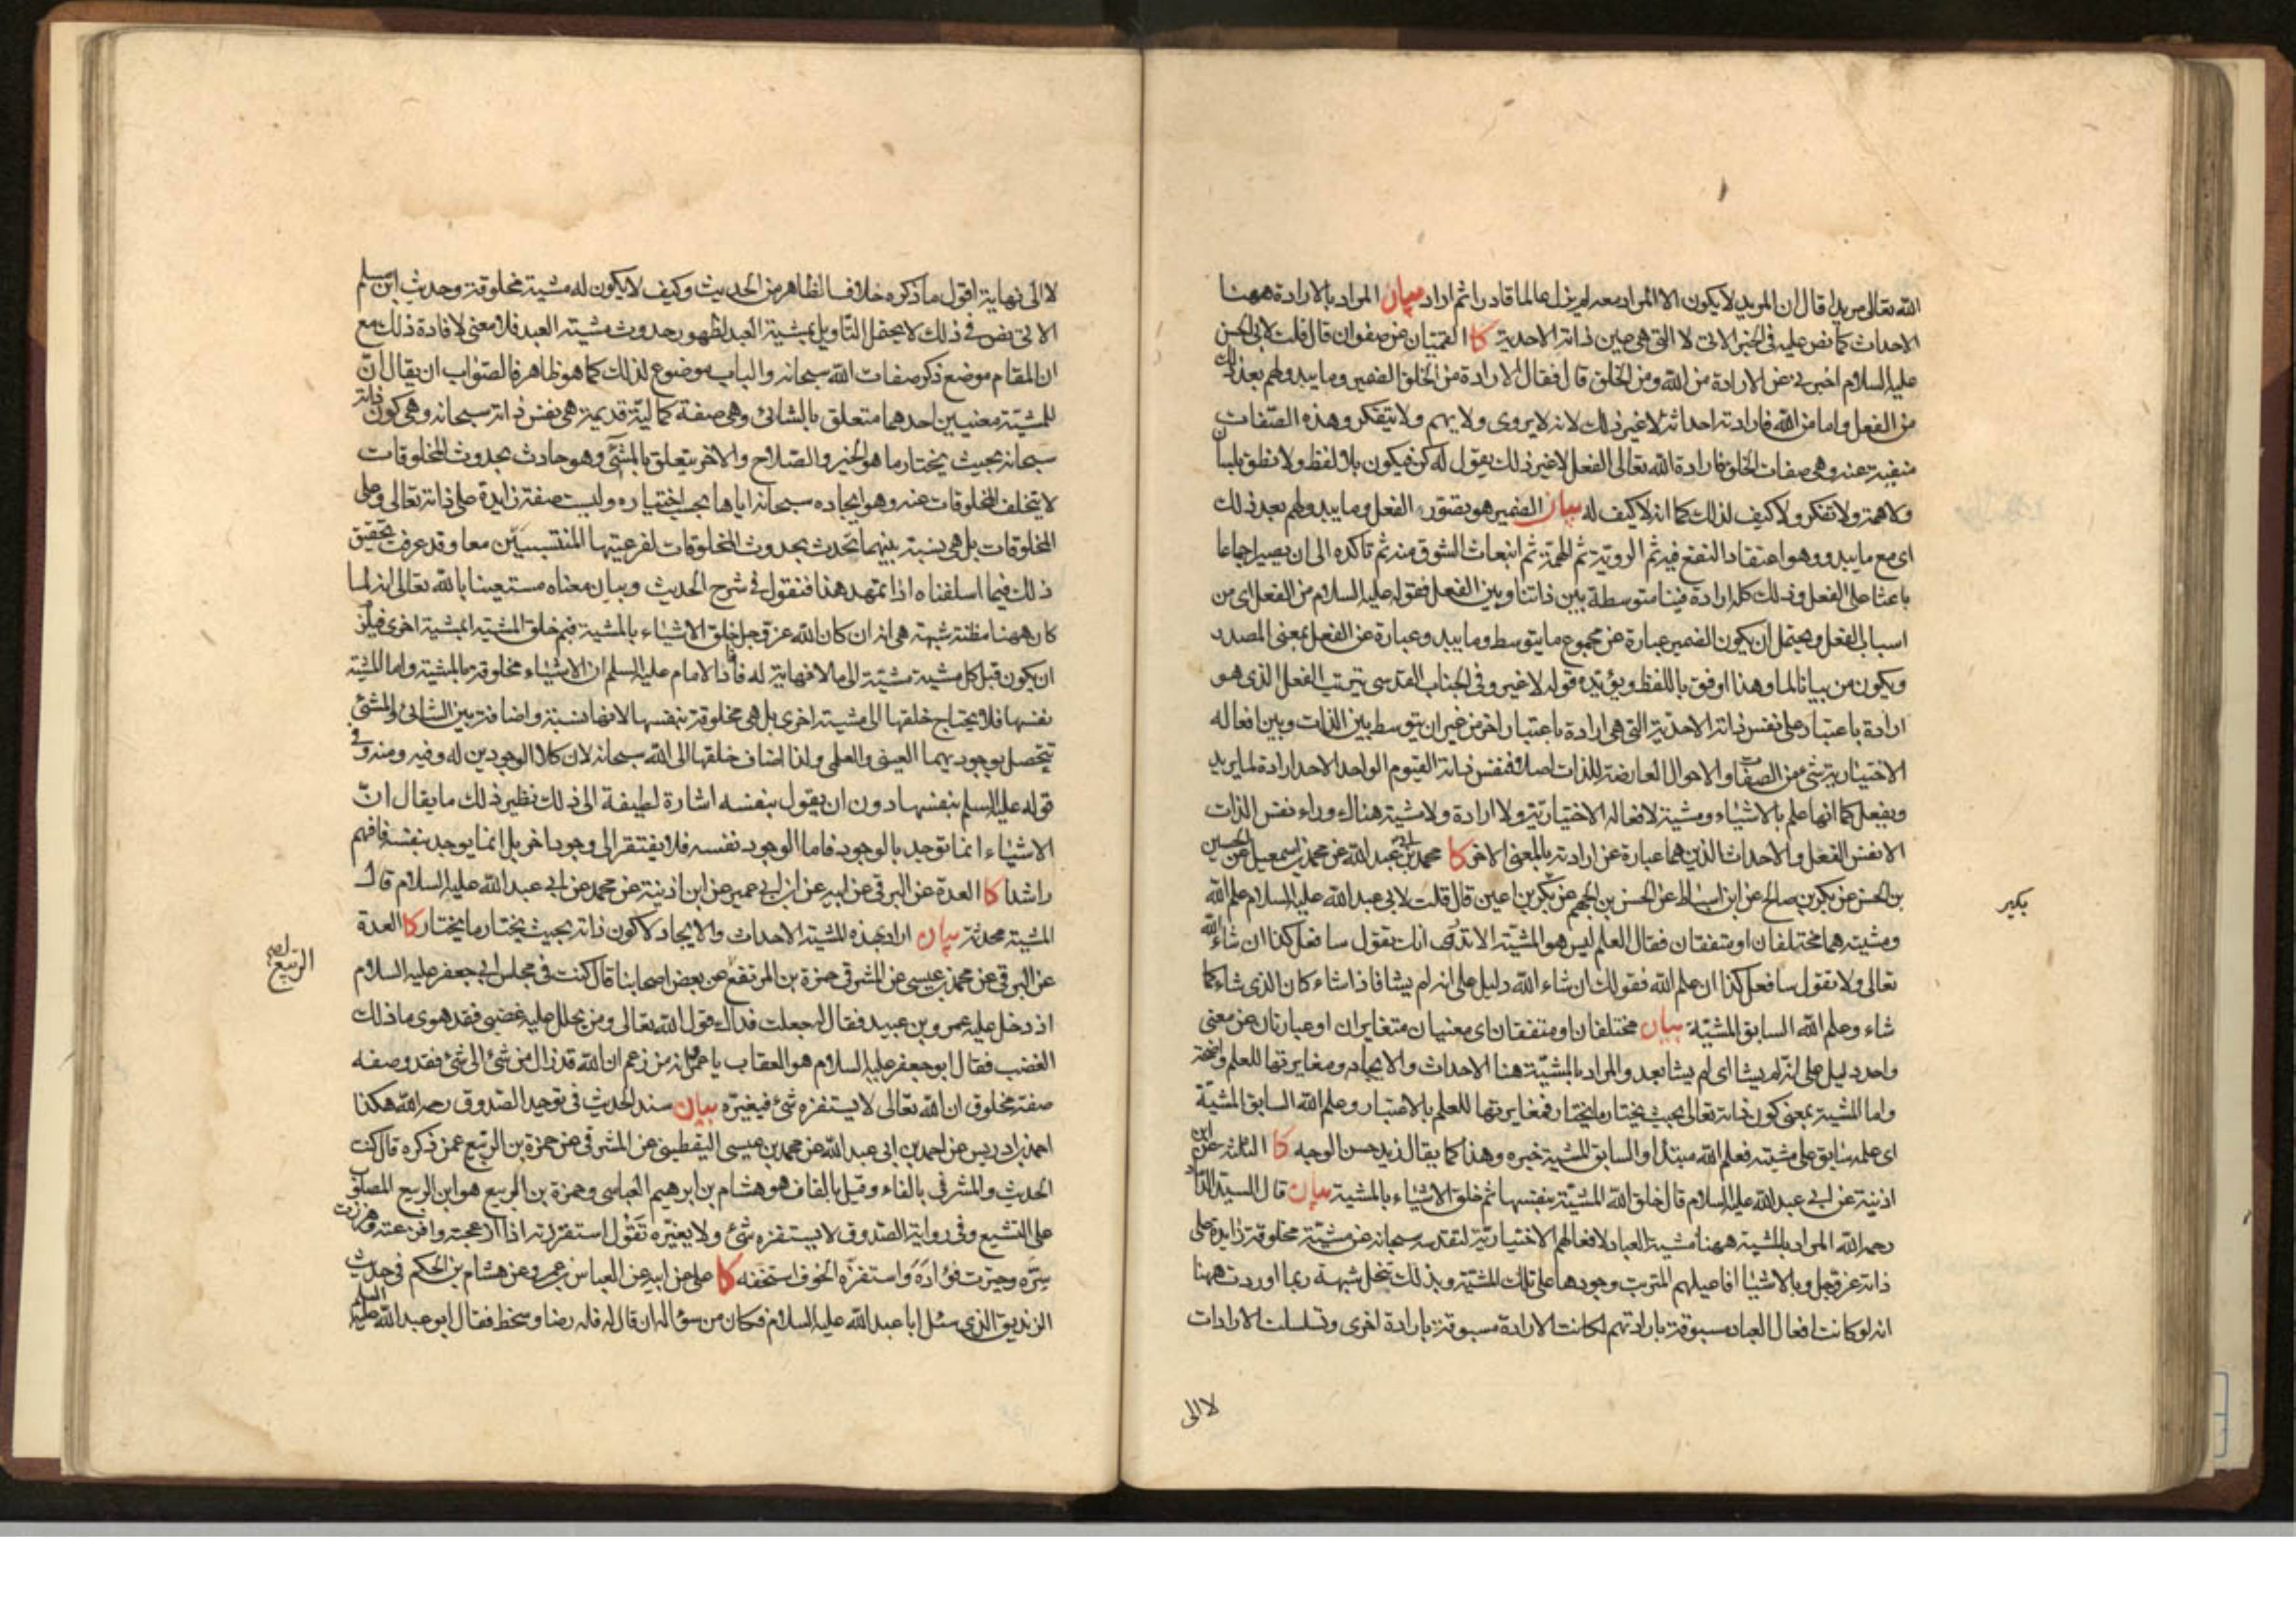 الله تعالى مريدا قال ان المريد لا يكون الا المراد معه لم يزل عالما قادرا ثم اراد بيان المراد بالارادة ههنا
الاحداث كما نص عليه فى الخبر الاتى لا التى هى عين ذاته الاحدية كا القميّان عن صفوان قال قلت لابى الحسن
عليه السلام اخبرنى عن الارادة من الله ومن الخلق قال فقال الارادة من الخلق الضمير وما يبدو لهم بعد ذلك
من الفعل واما من الله فارادته احداثه لا غير ذلك لانه لا يروى ولا يهم ولا يتفكر وهذه الصّفات
منفية عنه وهى صفات الخلق فارادة الله تعالى الفعل لا غير ذلك يقول له كن فيكون بلا لفظ ولا نطق بلسان
ولا همة ولا تفكر ولا كيف لذلك كما انه لا كيف له بيان الضمير هو تصوّر الفعل وما يبدو لهم بعد ذلك
اى مع ما يبدو وهو اعتقاد النفع فيه ثم الرويّة ثم الهمّة ثم انبعاث الشوق منه ثم تاكده الى ان يصير اجماعا
باعثا على الفعل وذلك كله ارادة فينا متوسطة بين ذاتنا وبين الفعل فقوله عليه السلام من الفعل اى من
اسباب الفعل ويحتمل ان يكون الضمير عبارة عن مجموع ما يتوسط وما يبدو عبارة عن الفعل بمعنى المصدر
ويكون من بيانا لما وهذا اوفق باللفظ ويؤيّده قوله لا غير وفى الجناب القدسى يترتب الفعل الذى هو
ارادة باعتبار على نفس ذاته الاحديّة التى هى ارادة باعتبار اخر من غير ان يتوسط بين الذات وبين افعاله
الاختيارية شئ من الصفات والاحوال العارضة للذات اصلا فنفس ذاته القيوم الواحد الاحد ارادة لما يريد
ويفعل كما انها علم بالاشياء ومشية لافعاله الاختياريّة ولا ارادة ولا مشية هناك وراء نفس الذات
الا نفس الفعل والاحداث الذين هما عبارة عن ارادته بالمعنى الاخر كا محمد بن ابى عبد الله عن محمد بن اسمعيل عن الحسين
بن الحسن عن بكر بن صالح عن ابن اسباط عن الحسن بن الجهم عن بكر بن اعين قال قلت لابى عبد الله عليه السلام علم الله
بكير
ومشيته هما مختلفان او متفقان فقال العلم ليس هو المشية الا ترى انك تقول سافعل كذا ان شاء الله
تعالى ولا تقول سافعل كذا ان علم الله فقولك ان شاء الله دليل على انه لم يشا فاذا شاء كان الذى شاء كما
شاء وعلم الله السابق المشيّة بيان مختلفان او متفقان اى معنيان متغايران او عبارتان عن معنى
واحد دليل على انّه لم يشا اى لم يشا بعد والمراد بالمشيّة هنا الاحداث والايجاد ومغايرتها للعلم واضحة
واما المشية بمعنى كون ذاته تعالى بحيث يختار ما يختار فمغايرتها للعلم بالاعتبار وعلم الله السابق المشيّة
اى علمه سابق على مشيته فعلم الله مبتدأ والسابق المشية خبره وهذا كما يقال زيد حسن الوجه كا الثلثة عن ابن
اذينة عن ابى عبد الله عليه السلام قال خلق الله المشيّة بنفسها ثم خلق الاشياء بالمشية بيان قال السيد الداماد
رحمه الله المراد بالمشية ههنا مشية العباد لافعالهم الاختياريّة لتقدسه سبحانه عن مشيّة مخلوقة زايدة على
ذاته عز وجل وبالاشياء افاعيلهم المترتب وجودها على تلك المشيّة وبذلك تنحل شبهة ربما اوردت ههنا
انه لو كانت افعال العباد مسبوقة بارادتهم لكانت الارادة مسبوقة بارادة اخرى وتسلسلت الارادات
لا الى
لا الى نهاية اقول ما ذكره خلاف الظاهر من الحديث وكيف لا يكون له مشية مخلوقة وحديث ابن مسلم
الاتى نص فى ذلك لا يحتمل التاويل بمشية العبد لظهور حدوث مشية العبد فلا معنى لافادة ذلك مع
ان المقام موضع ذكر صفات الله سبحانه والباب موضوع لذلك كما هو ظاهر فالصّواب ان يقال انّ
للمشيّة معنيين احدهما متعلق بالشائى وهى صفة كمالية قديمة هى نفس ذاته سبحانه وهى كون ذاته
سبحانه بحيث يختار ما هو الخير والصّلاح والاخر يتعلق بالمشئ وهو حادث بحدوث المخلوقات
لا يتخلف المخلوقات عنه وهو ايجاده سبحانه اياها بحسب اختياره وليست صفة زايدة على ذاته تعالى وعلى
المخلوقات بل هى نسبة بينهما تحدث بحدوث المخلوقات لفرعيتها المنتسبين معا وقد عرفت تحقيق
ذلك فيما اسلفناه اذا تمهد هذا فنقول فى شرح الحديث وبيان معناه مستعينا بالله تعالى انه لما
كان ههنا مظنة شبهة هى انه ان كان الله عز وجل خلق الاشياء بالمشية فبم خلق المشية ابمشية اخرى فيلزم
ان يكون قبل كل مشية مشيّة الى ما لا نهاية له فافاد الامام عليه السلم ان الاشياء مخلوقة بالمشية واما المشية
نفسها فلا يحتاج خلقها الى مشية اخرى بل هى مخلوقة بنفسها لانها نسبة واضافة بين الشائى والمشئ
تتحصل بوجوديهما العينى والعلمى ولذا اضاف خلقها الى الله سبحانه لان كلا الوجودين له وفيه ومنه وفى
قوله عليه السلم بنفسها دون ان يقول بنفسه اشارة لطيفة الى ذلك نظير ذلك ما يقال انّ
الاشياء انما توجد بالوجود فاما الوجود نفسه فلا يفتقر الى وجود اخر بل انما يوجد بنفسه فافهم
راشدا كا العدة عن البرقى عن ابيه عن ابن ابى عمير عن ابن اذينة عن محمد عن ابى عبد الله عليه السلام قال
المشية محدثة بيان اراد بهذه المشية الاحداث والايجاد لا كون ذاته بحيث يختار ما يختار كا العدة
عن البرقى عن محمد بن عيسى عن المشرقى حمزة بن المرتفع عن بعض اصحابنا قال كنت فى مجلس ابى جعفر عليه السلام
الربيع اصح
اذ دخل عليه عمرو بن عبيد فقال له جعلت فداك قول الله تعالى ومن يحلل عليه غضبى فقد هوى ما ذلك
الغضب فقال ابو جعفر عليه السلام هو العقاب يا عمرو انه من زعم ان الله قد زال من شئ الى شئ فقد وصفه
صفة مخلوق ان الله تعالى لا يستفزه شئ فيغيّره بيان سند الحديث فى توحيد الصّدوق رحمه الله هكذا
احمد بن ادريس عن احمد بن ابى عبد الله عن محمد بن عيسى اليقطينى عن المشرقى عن حمزة بن الربيع عمن ذكره قال كنت
الحديث والمشرفى بالفاء وقيل بالقاف هو هشام بن ابرهيم العباسى وحمزة بن الربيع هو ابن الربيع المصلوب
على التشيع وفى رواية الصّدوق لا يستفزه شئ ولا يغيّره تقول استفززته اذا ازعجته وافزعته
وحيّرت فؤاده واستفزّه الخوف استخفه كا على عن ابيه عن العباس بن عمرو عن هشام بن الحكم فى حديث
الزنديق الذى سئل ابا عبد الله عليه السلام فكان من سؤاله ان قال له فله رضا وسخط فقال ابو عبد الله عليه السلم